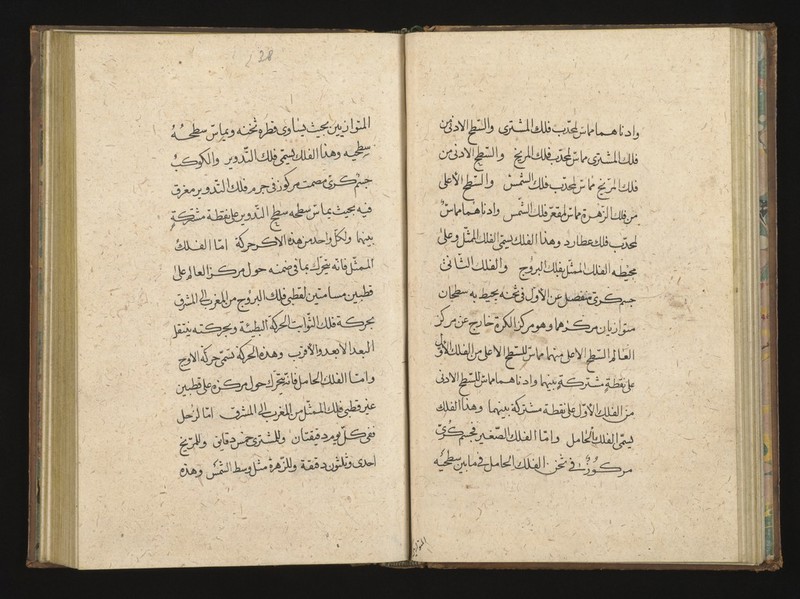 وادناهما مماس لمحدب فلك المشترى والسطح الادنى من
فلك المشترى مماس لمحدب فلك المريخ والسطح الادنى من
فلك المريخ مماس لمحدب فلك الشمس والسطح الاعلى
من فلك الزهرة مماس لمقعر فلك الشمس وادناهما مماس
لمحدب فلك عطارد وهذا الفلك يسمى الفلك الممثل وعلى
محيطه الفلك الممثل بفلك البروج والفلك الثانى
جسم كرى منفصل عن الاول فى ثخنه يحيط به سطحان
متوازيان مركزهما وهو مركز الكرة خارج عن مركز
العالم السطح الاعلى منهما مماس للسطح الاعلى من الفلك الاول
على نقطة مشتركة بينهما وادناهما مماس للسطح الادنى
من الفلك الاول على نقطة مشتركة بينهما وهذا الفلك
يسمى الفلك الحامل واما الفلك الصغير فجسم كرى
مركوز فى ثخن الفلك الحامل فى ما بين سطحيه
28
المتوازيين بحيث يساوى قطره ثخنه ويماس سطحه
سطحيه وهذا الفلك يسمى فلك التدوير والكوكب
جسم كرى مصمت مركوز فى جرم فلك التدوير مغرق
فيه بحيث يماس سطحه سطح التدوير على نقطة مشتركة
بينهما ولكل واحد من هذه الاكر حركة اما الفلك
الممثل فانه يتحرك بما فى ضمنه حول مركز العالم على
قطبين مسامتين لقطبى فلك البروج من المغرب الى المشرق
بحركة فلك الثوابت الحركة البطيئة وبحركته ينتقل
البعد الابعد والاقرب وهذه الحركة تسمى حركة الاوج
واما الفلك الحامل فانه يتحرك حول مركزه على قطبين
غير قطبى فلك الممثل من المغرب الى المشرق اما لزحل
ففى كل يوم دقيقتان وللمشترى خمس دقايق وللمريخ
احدى وثلثون دقيقة وللزهرة مثل وسط الشمس وهذه